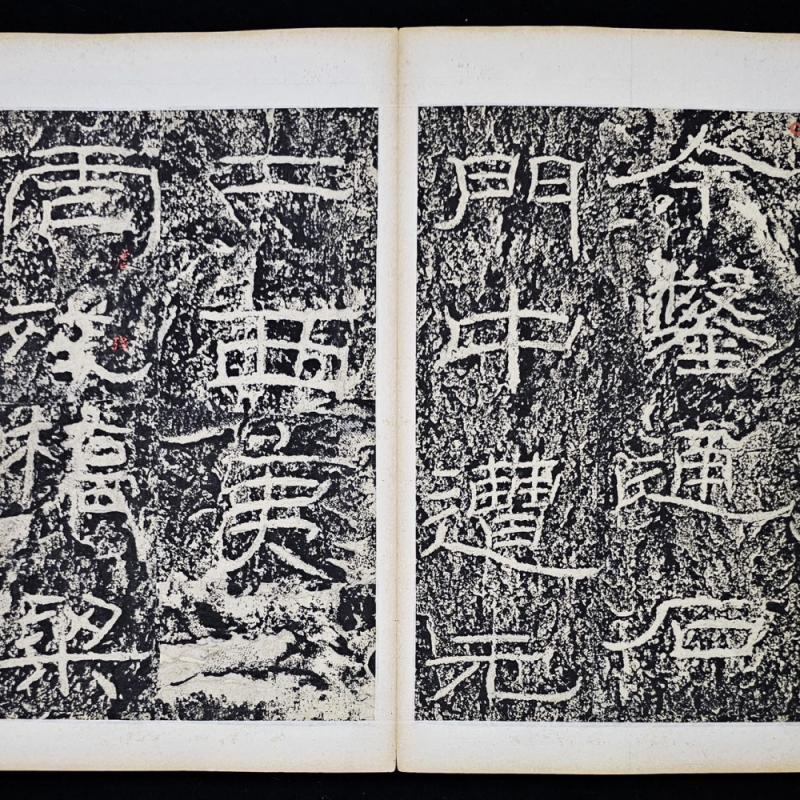 余鑿通石
門中遭元
二西夷
虐殘橋梁